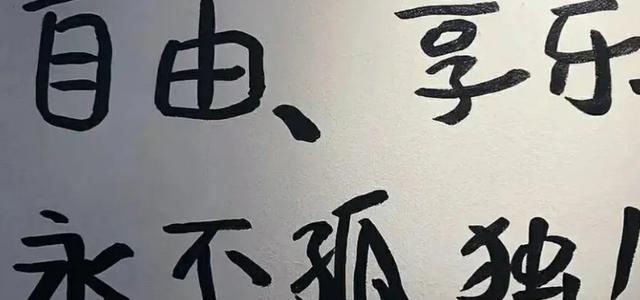 自由、享乐
永不孤独!